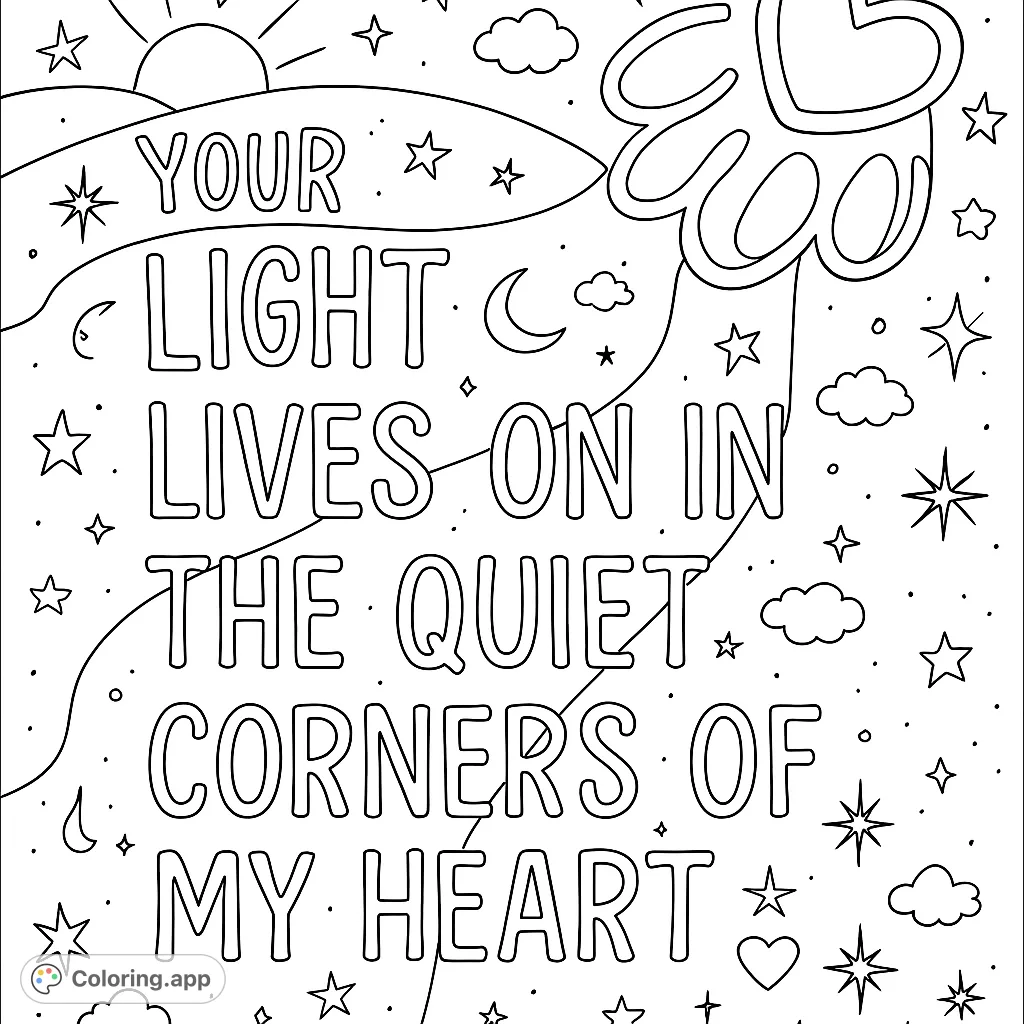 YOUR
LIGHT
LIVES ON IN
THE QUIET
CORNERS OF
MY HEART
Coloring.app